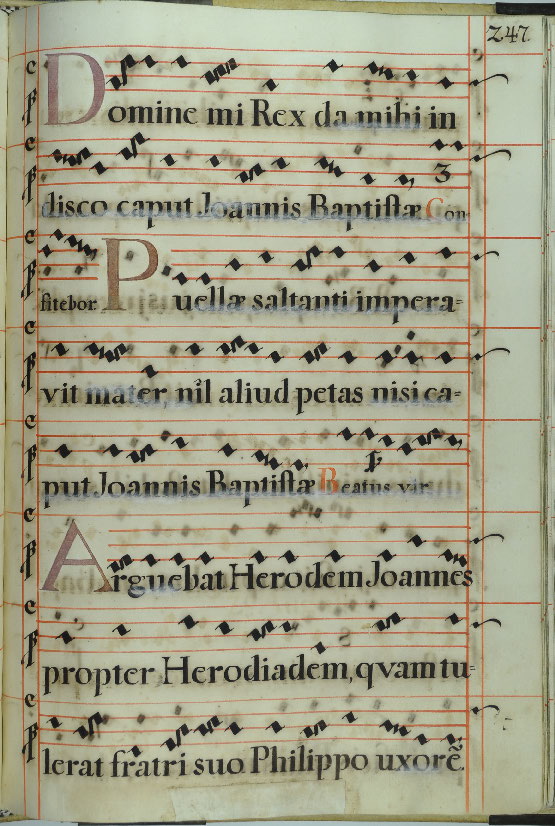 247
Domine mi Rex da mihi in
disco caput Joannis Baptistæ Con
fitebor. Puellæ saltanti impera=
vit mater, nil aliud petas nisi ca=
put Joannis Baptistæ Beatus vir
Arguebat Herodem Joannes
propter Herodiadem, qvam tu=
lerat fratri suo Philippo uxorẽ.